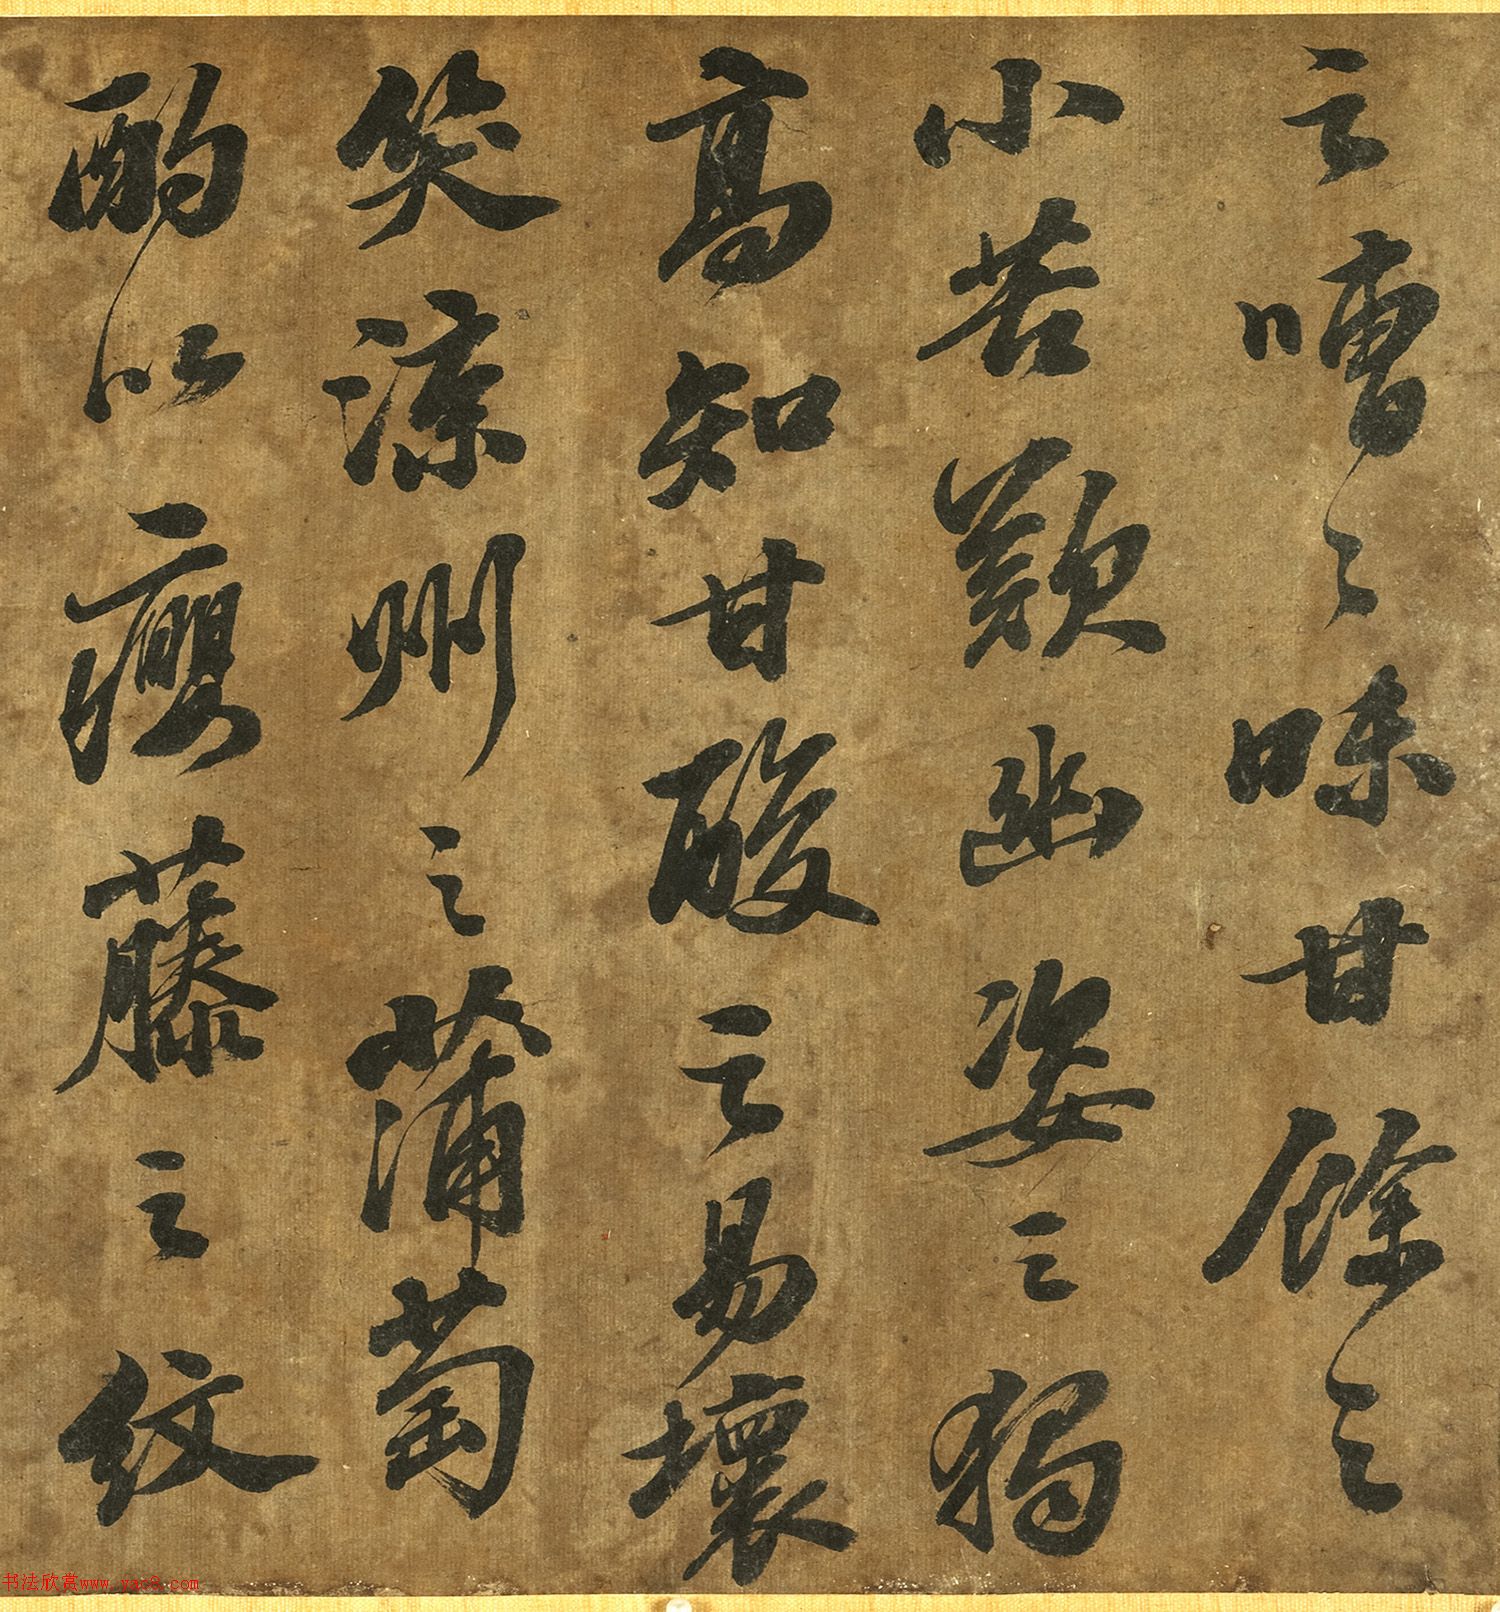 之嘈〻味甘餘之
小苦歎幽姿之獨
高知甘酸之易壞
笑涼州之蒲萄
酌以癭藤之紋
书法欣赏www.yac8.com